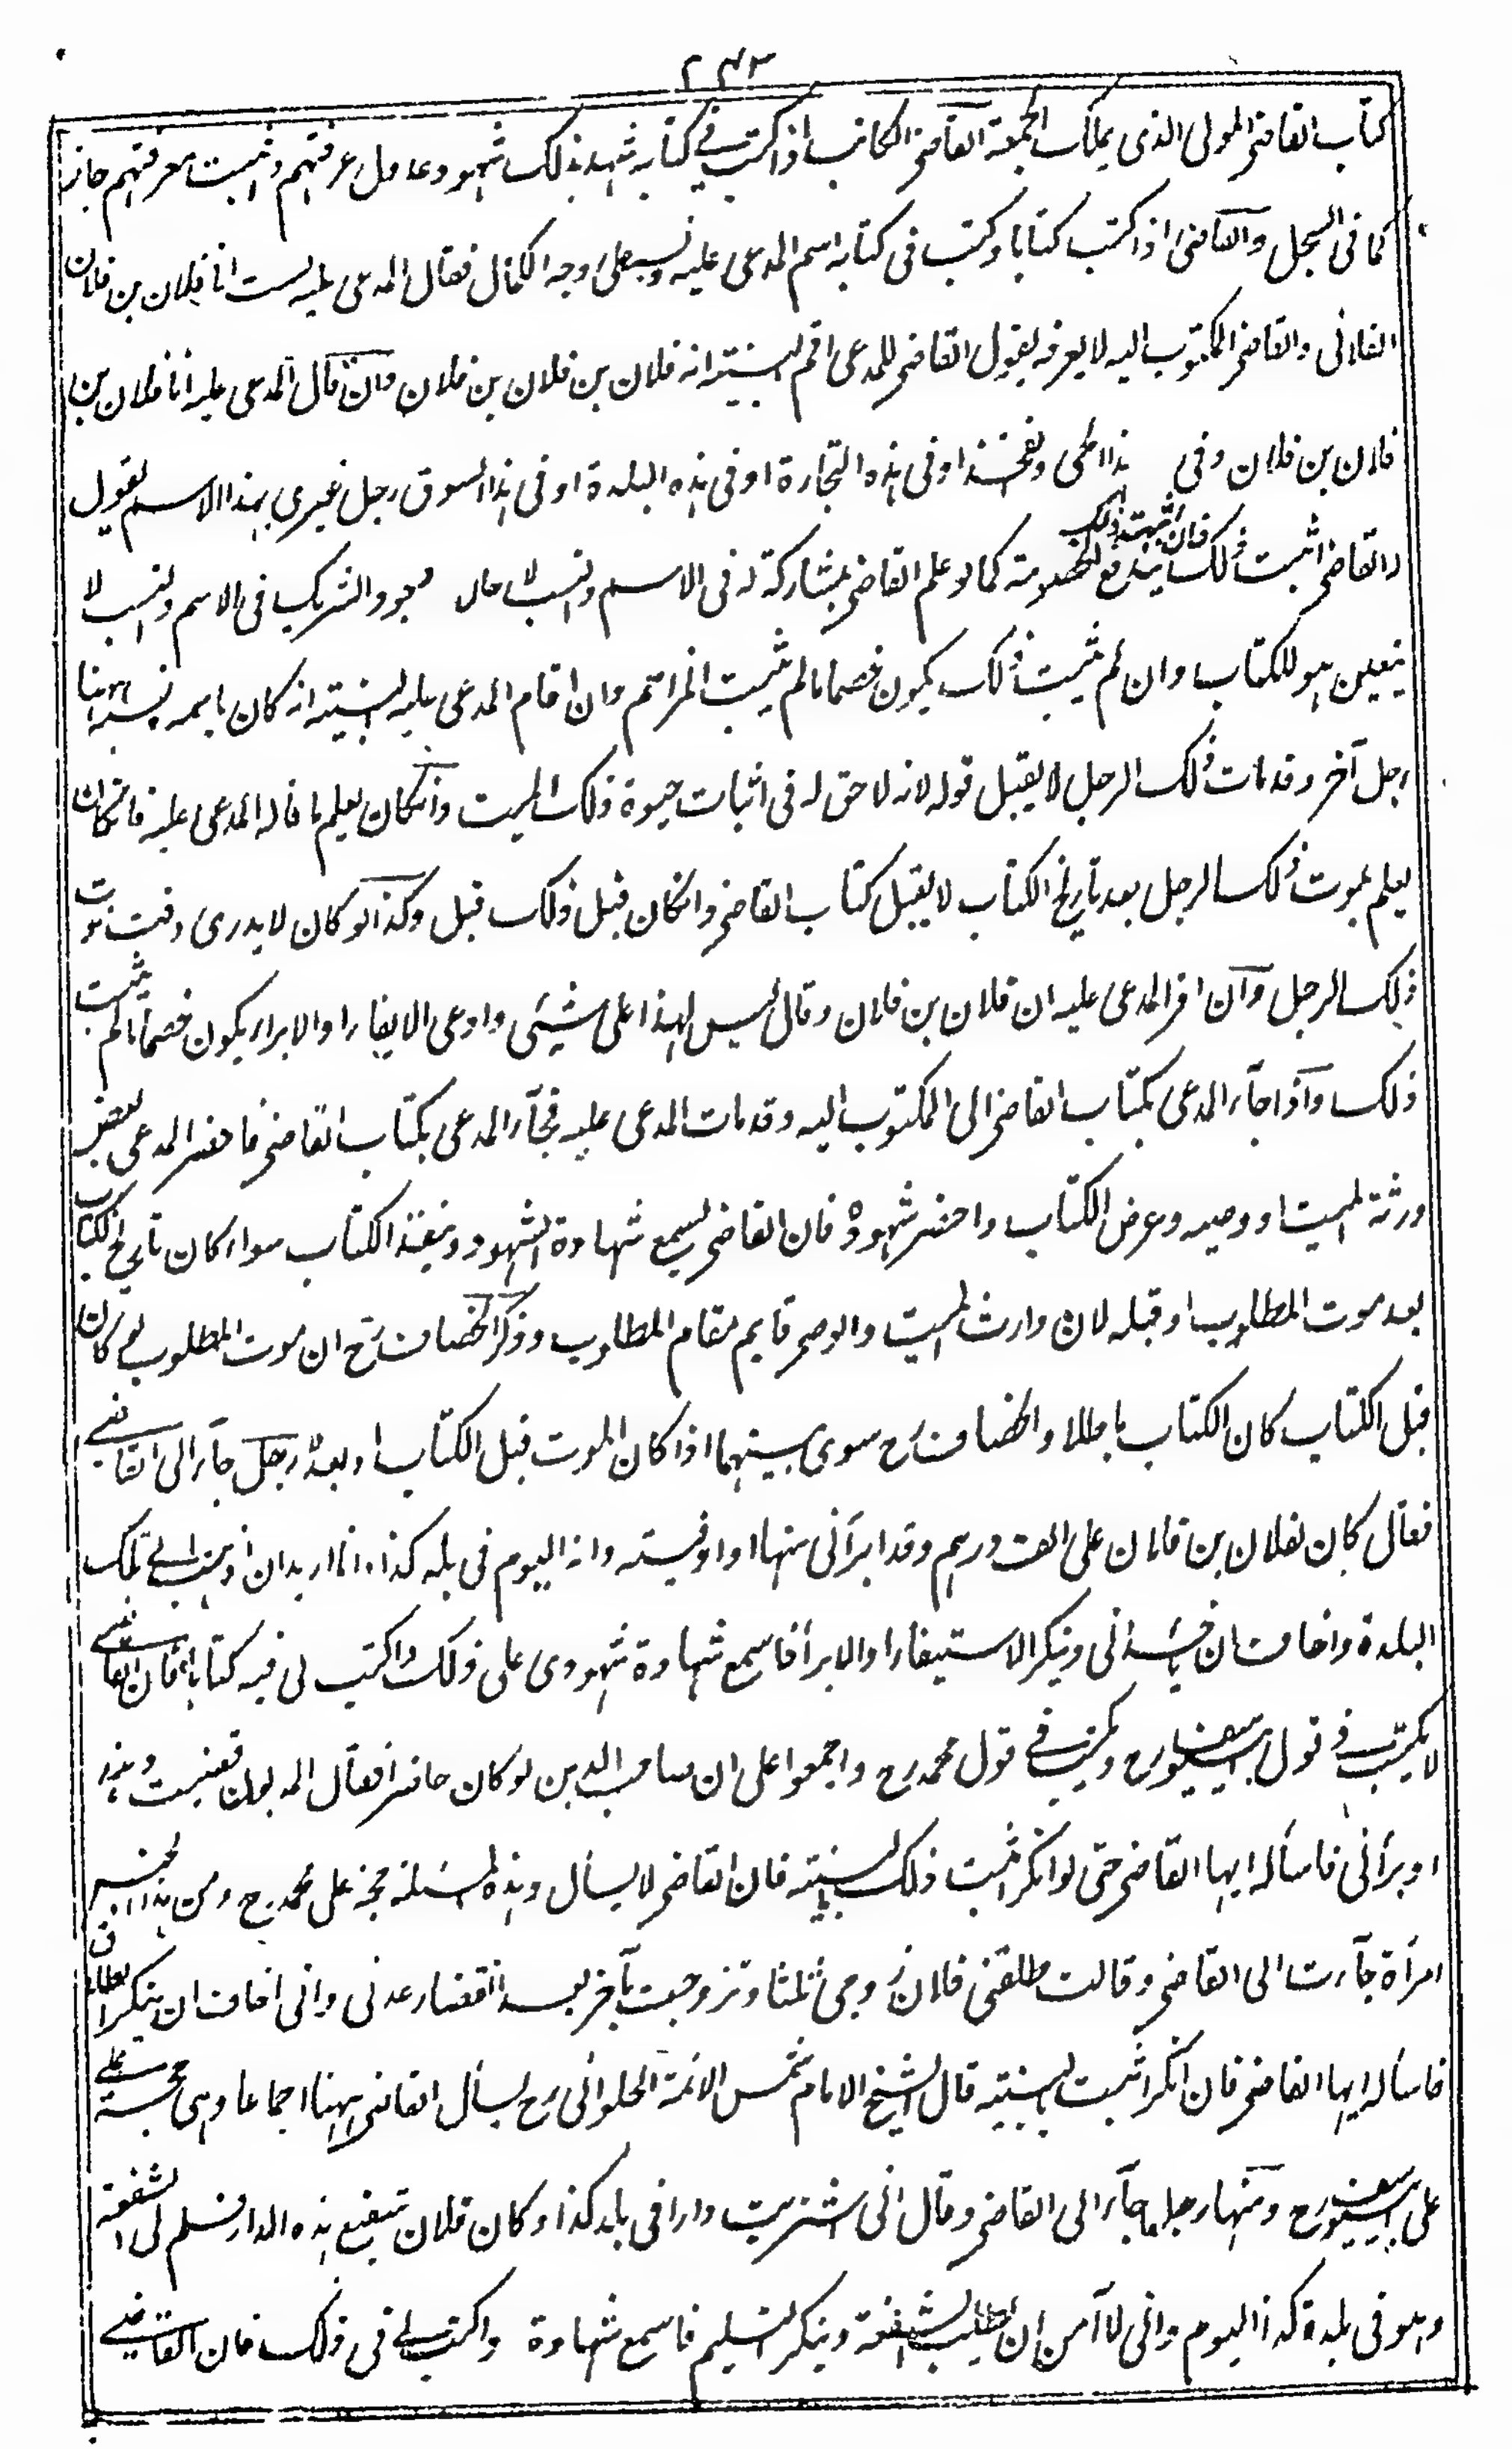 ٢٤٣
كتاب القاضي المولى الذي يملك الجمعة القاضي الكاتب اذا كتب في كتابه شهد بذلك شهود عدول عرفتهم واثبت معرفتهم جاز
كما في السجل والقاضي اذا كتب كتابا وكتب في كتابه اسم المدعى عليه ونسبه على وجه الكمال فقال المدعى عليه لست انا فلان بن فلان
الفلاني والقاضي المكتوب اليه لا يعرفه يقول القاضي للمدعي اقم البينة انه فلان بن فلان بن فلان وان قال المدعى عليه انا فلان بن
فلان بن فلان وفي هذا الحي والفخذ او في هذه التجارة او في هذه البلدة او في هذا السوق رجل غيري بهذا الاسم يقول
له القاضي اثبت ذلك فان اثبت ذلك يندفع الخصومة كما لو علم القاضي بمشاركة له في الاسم والنسب لان حال وجود الشريك في الاسم والنسب لا
يتعين هو للكتاب وان لم يثبت ذلك يكون خصما ما لم يثبت المزاحم وان اقام المدعى عليه البينة انه كان باسمه ونسبه ههنا
رجل آخر وقد مات ذلك الرجل لا يقبل قوله لانه لا حق له في اثبات حيوة ذلك الميت وان كان يعلم ما قاله المدعى عليه فان كان
يعلم بموت ذلك الرجل بعد تاريخ الكتاب لا يقبل كتاب القاضي وان كان قبل ذلك قبل وكذا لو كان لا يدري وقت موت
ذلك الرجل وان اقر المدعى عليه ان فلان بن فلان وقال ليس لهذا علي شيئ وادعى الايفاء او الابراء يكون خصما ما لم يثبت
ذلك واذا جاء المدعي بكتاب القاضي الى المكتوب اليه وقد مات المدعى عليه فجاء المدعي بكتاب القاضي فاحضر المدعي بعض
ورثة الميت او وصيه وعرض الكتاب واحضر شهوده فان القاضي يسمع شهادة الشهود وينفذ الكتاب سواء كان تاريخ الكتاب
بعد موت المطلوب او قبله لان وارث الميت والوصي قايم مقام المطلوب وذكر الخصاف رح ان موت المطلوب لو كان
قبل الكتاب كان الكتاب باطلا والخصاف رح سوى بينهما اذا كان الموت قبل الكتاب او بعده رجل جاء الى القاضي
فقال كان لفلان بن فلان علي الف درهم وقد ابرأني منها او اوفيته وانه اليوم في بلد كذا وانا اريد ان اذهب الى تلك
البلدة واخاف ان يأخذني وينكر الاستيفاء او الابراء فاسمع شهادة شهودي على ذلك واكتب لي فيه كتابا فان القاضي
لا يكتب في قول ابي يوسف رح ويكتب في قول محمد رح واجمعوا على ان صاحب الدين لو كان حاضرا فقال المديون قضيت دينه
او برأني فاسأله ايها القاضي حتى لو انكر اثبت ذلك بالبينة فان القاضي لا يسأل وهذه المسئلة حجة على محمد رح ومن هذا الجنس
امرأة جاءت الى القاضي وقالت طلقني فلان زوجي ثلثا وتزوجت بآخر بعد انقضاء عدتي واني اخاف ان ينكر الطلاق
فاسأله ايها القاضي فان انكر اثبت بالبينة قال الشيخ الامام شمس الائمة الحلواني رح يسأل القاضي ههنا اجماعا وهي حجة على
على ابي يوسف رح ومنها رجل جاء الى القاضي وقال اني اشتريت دارا في بلد كذا وكان فلان شفيع هذه الدار فسلم لي الشفعة
وهو في بلدة كذا اليوم واني لا آمن ان يطلب الشفعة وينكر التسليم فاسمع شهادة واكتب لي في ذلك فان القاضي